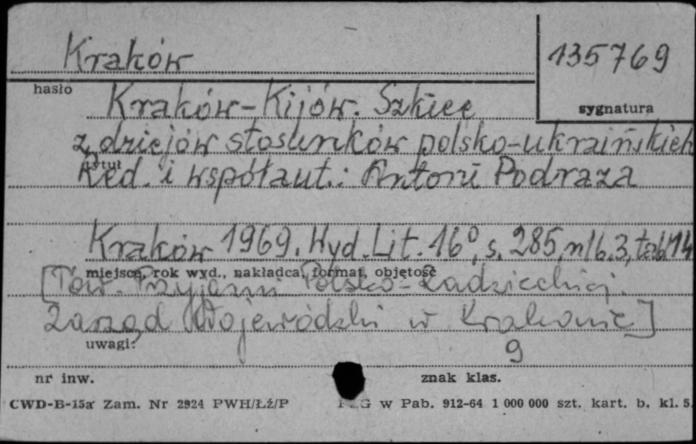 Kraków
135769
hasło
sygnatura
Kraków-Kijów. Szkice
z dziejów stosunków polsko-ukraińskich
tytuł
Red. i współaut.: Antoni Podraza
Kraków 1969. Wyd. Lit. 16°, s. 285, nlb. 3, tabl. 14
miejsce, rok wyd., nakładca, format, objętość
[Tow. Przyjaźni Polsko-Radzieckiej.
Zarząd Wojewódzki w Krakowie]
uwagi:
9
nr inw.
znak klas.
CWD-B-15a Zam. Nr 2924 PWH/Łź/P
w Pab. 912-64 1 000 000 szt. kart. b. kl. 5.